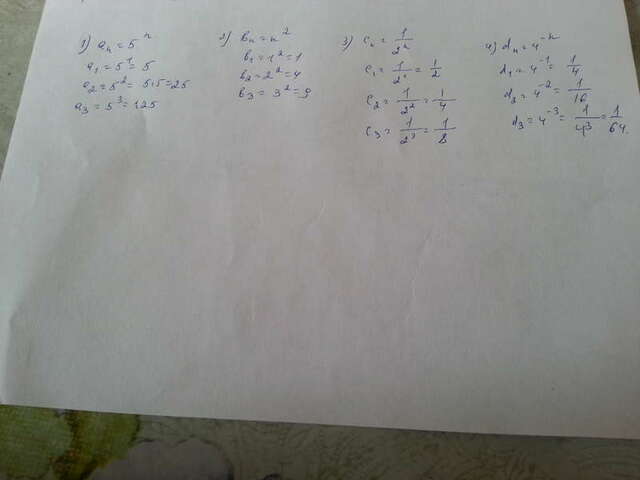 1) aₙ = 5ⁿ
a₁ = 5¹ = 5
a₂ = 5² = 5·5 = 25
a₃ = 5³ = 125
2) bₙ = n²
b₁ = 1² = 1
b₂ = 2² = 4
b₃ = 3² = 9
3) cₙ = 1/2ⁿ
c₁ = 1/2¹ = 1/2
c₂ = 1/2² = 1/4
c₃ = 1/2³ = 1/8
4) dₙ = 4⁻ⁿ
d₁ = 4⁻¹ = 1/4
d₂ = 4⁻² = 1/16
d₃ = 4⁻³ = 1/4³ = 1/64.